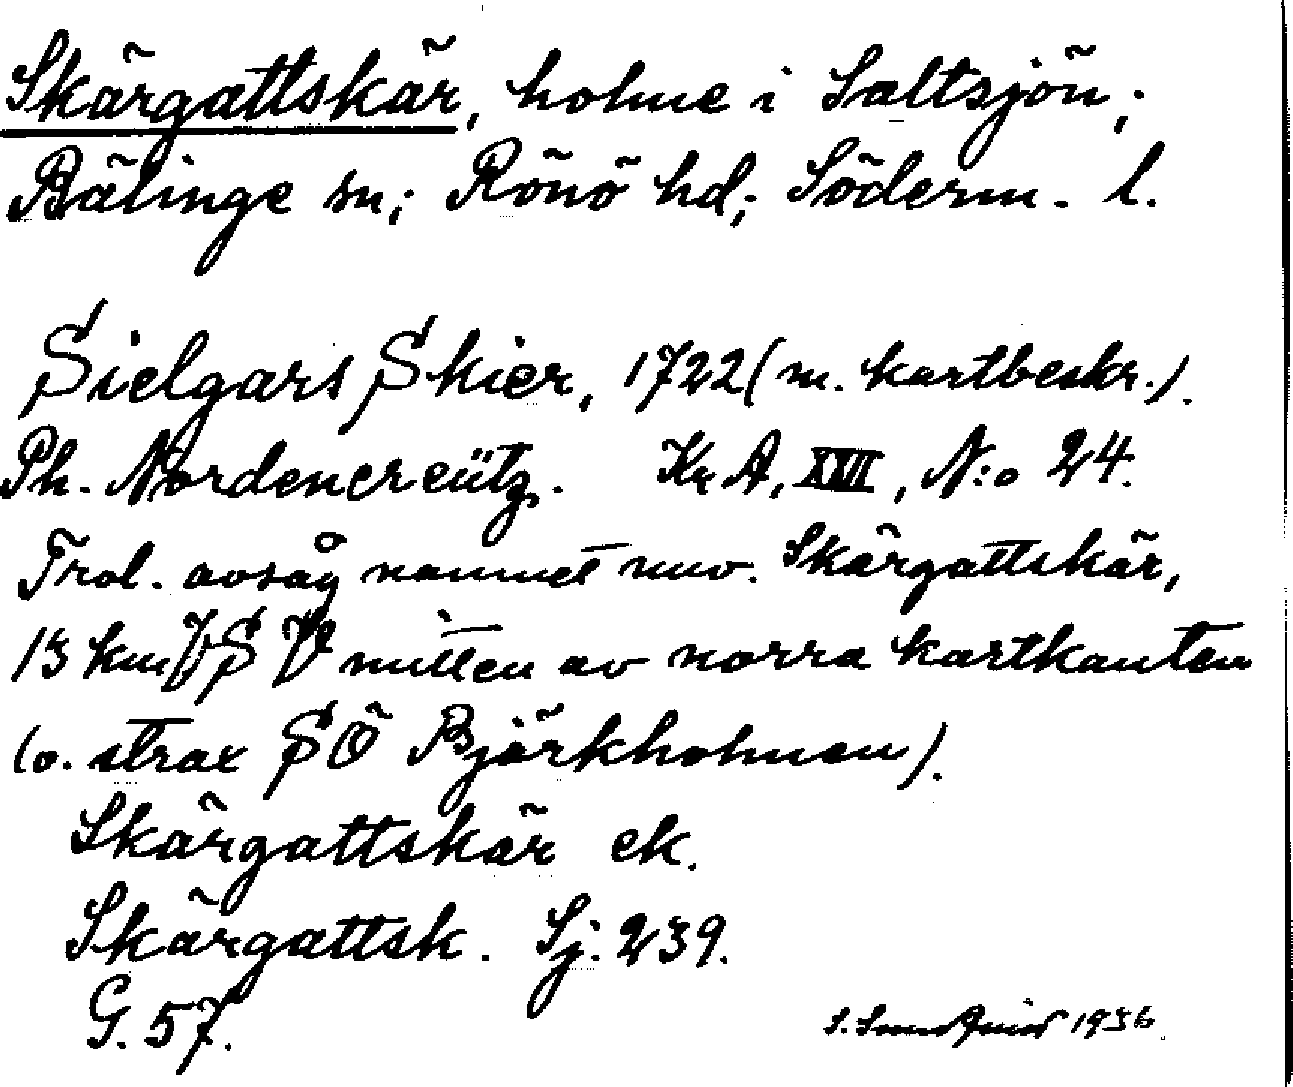 Skärgattskär, holme i Saltsjön;
Bälinge sn; Rönö hd; Söderm. l.
Sielgars Skier, 1722 (m. kartbeskr.).
Ph. Nordencreütz. Kr A, XVII, N:o 24.
Trol. avsåg namnet nuv. Skärgattskär,
13 km VSV mitten av norra kartkanten
(o. strax SÖ Björkholmen).
Skärgattskär ek.
Skärgattsk. Sj. 239.
G. 57.
S. 1936